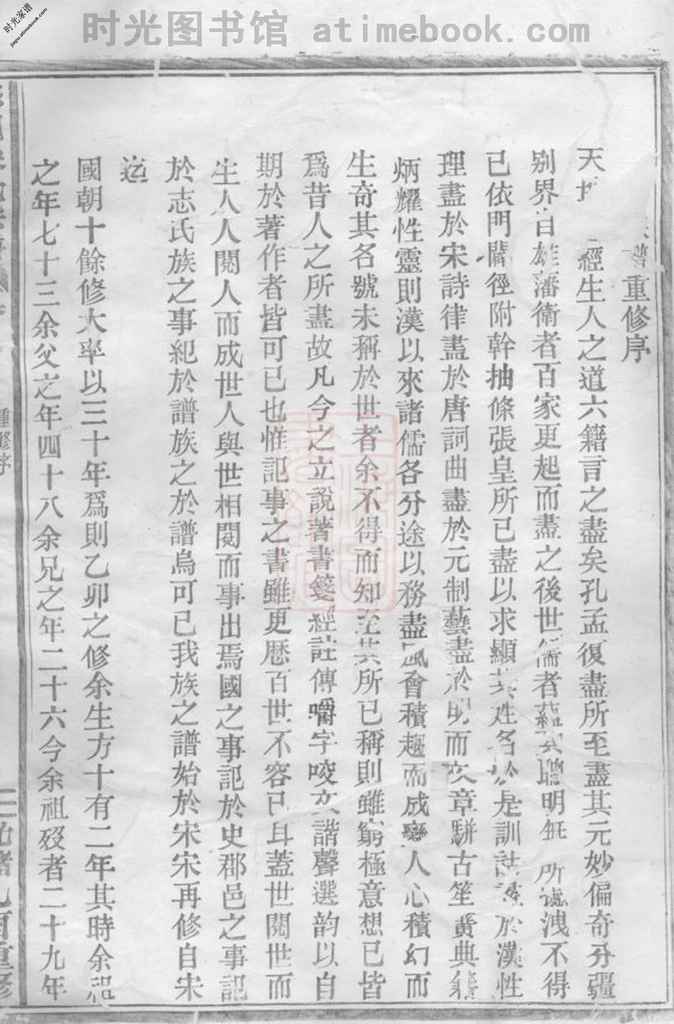 时光图书馆 atimebook.com
时光家谱
jiapu.atimebook.com
重修序
天 經生人之道六籍言之盡矣孔孟復盡所至盡其元妙偏奇分疆
別界自雄藩衛者百家更起而盡之後世儒者 聰明無所 洩不得
已依門闚徑附幹抽條張皇所已盡以求顯其姓名於是訓詁 於漢性
理盡於宋詩律盡於唐詞曲盡於元制藝盡於明而文章騈古笙簧典籍
炳耀性靈則漢以來諸儒各分途以務盡風會積趨而成變人心積幻而
生奇其名號未稱於世者余不得而知至其所已稱則雖窮極意想已皆
爲昔人之所盡故凡今之立說著書箋經註傳嚼字咬文諧聲選韵以自
期於著作者皆可已也惟記事之書雖更歴百世不容已且蓋世閱世而
生人人閱人而成世人與世相閱而事出焉國之事記於史郡邑之事記
於志氏族之事紀於譜族之於譜烏可已我族之譜始於宋宋再修自宋
迄
國朝十餘修大率以三十年爲則乙卯之修余生方十有二年其時余祖
之年七十三余父之年四十八余兄之年二十六今余祖歿者二十九年
重修序
酉重修